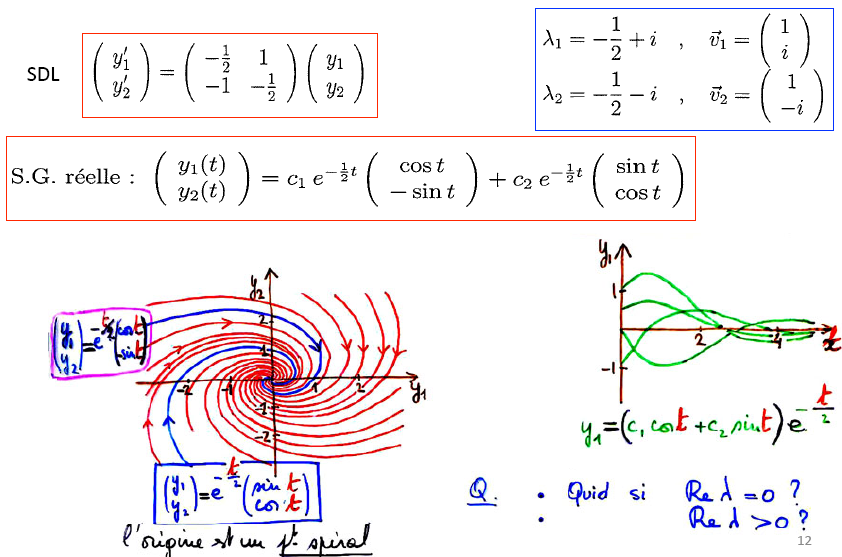 SDL ( y₁′ y₂′ ) = ( −1/2 1 −1 −1/2 ) ( y₁ y₂ )
λ₁ = −1/2 + i , v⃗₁ = ( 1 i )
λ₂ = −1/2 − i , v⃗₂ = ( 1 −i )
S.G. réelle : ( y₁(t) y₂(t) ) = c₁ e^{−1/2 t} ( cos t − sin t ) + c₂ e^{−1/2 t} ( sin t cos t )
y₂
2
1
-2 -1 1 2 y₁
-1
-2
( y₁ y₂ ) = e^{-t/2} ( cos t -sin t )
( y₁ y₂ ) = e^{-t/2} ( sin t cos t )
l'origine est un pt spiral
y₁
1
2 4 t
-1
y₁ = (c₁ cos t + c₂ sin t) e^{-t/2}
Q. • Quid si Re λ = 0 ?
• Re λ > 0 ?
12